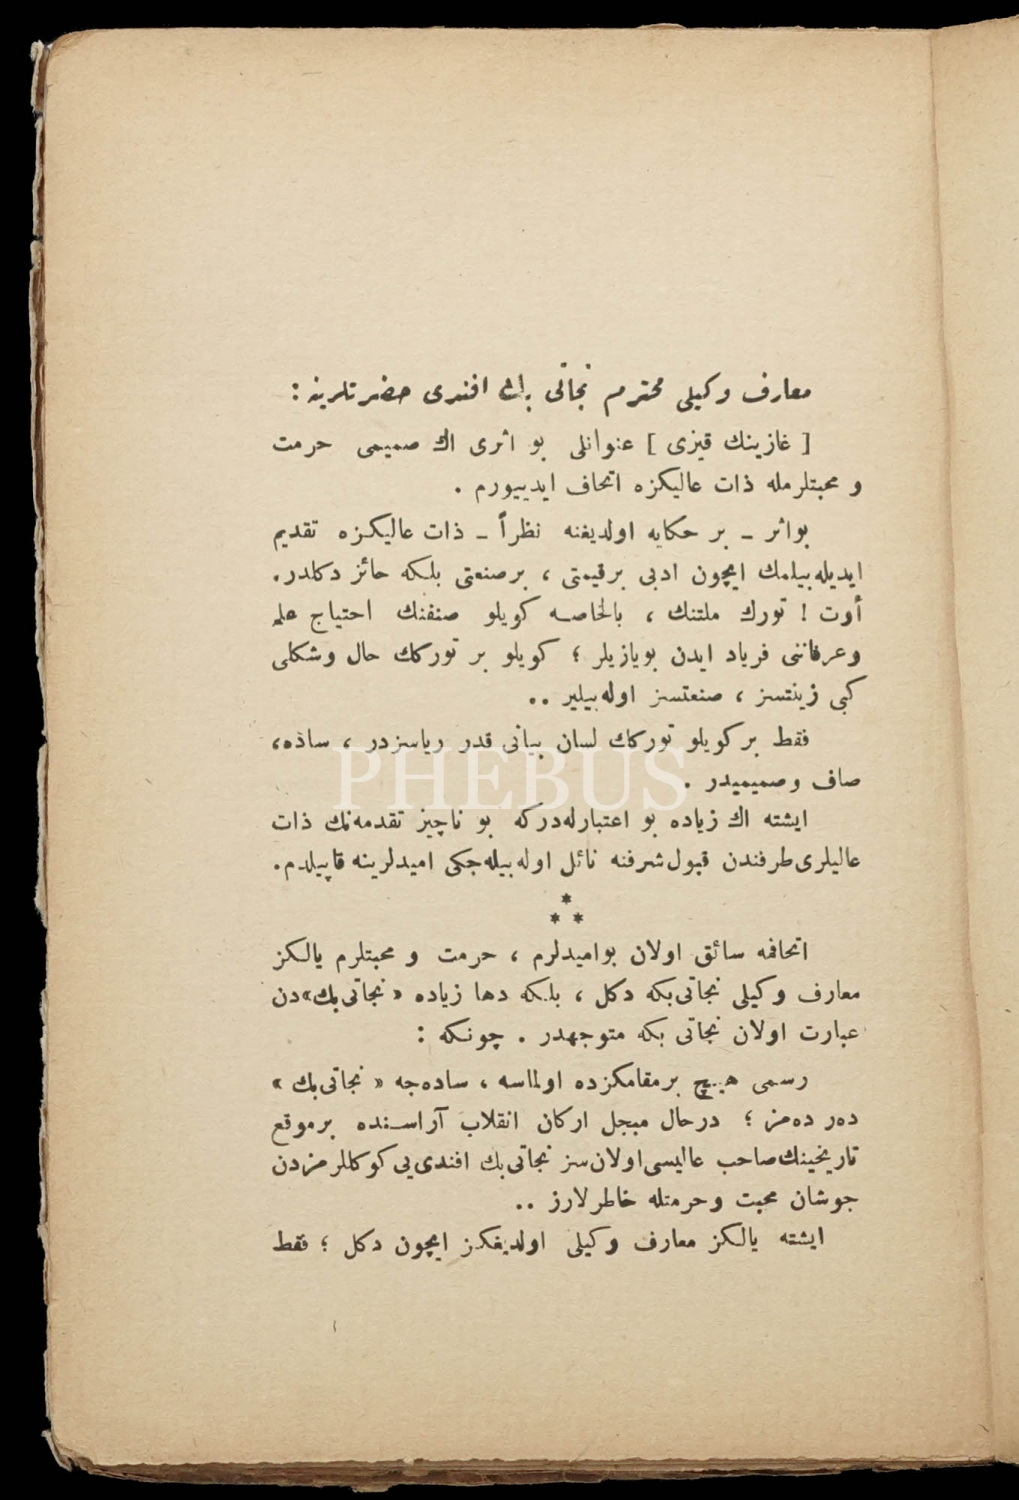 معارف وكيلى محترم نجاتى بك افندى حضرتلرينه :
[ غازينك قيزى ] عنوانلى بو اثرى اك صميمى حرمت
و محبتلرمله ذات عاليكزه اتحاف ايدييورم .
بواثر ـ بر حكايه اولديغنه نظراً ـ ذات عاليكزه تقديم
ايديله‌بيلمك ايچون ادبى برقيمتى ، برصنعتى بلكه حائز دكلدر.
أوت ! تورك ملتنك ، بالخاصه كويلو صنفنك احتياج علم
وعرفاننى فرياد ايدن بويازيلر ؛ كويلو بر توركك حال وشكلى
كبى زينتسز ، صنعتسز اوله‌بيلير ..
فقط بركويلو توركك لسان بيانى قدر رياسزدر ، ساده،
صاف وصميميدر .
ايشته اك زياده بو اعتبارله‌دركه بو ناچيز تقدمه‌نك ذات
عاليلرى‌طرفندن قبول‌شرفنه نائل اوله‌بيله‌جكى اميدلرينه قاپيلدم.
* * *
اتحافمه سائق اولان بواميدلرم ، حرمت و محبتلرم يالكز
معارف وكيلى نجاتى‌بكه دكل ، بلكه دها زياده « نجاتى‌بك»دن
عبارت اولان نجاتى بكه متوجهدر . چونكه :
رسمى هيچ برمقامكزده اولماسه ، ساده‌جه « نجاتى‌بك »
ده‌ر ده‌مز ؛ درحال مبجل اركان انقلاب آراسنده برموقع
تاريخينك‌صاحب عاليسى‌اولان‌سز نجاتى‌بك افندى‌يى كوكللرمزدن
جوشان محبت وحرمتله خاطرلارز ..
ايشته يالكز معارف وكيلى اولديغكز ايچون دكل ؛ فقط
PHEBUS